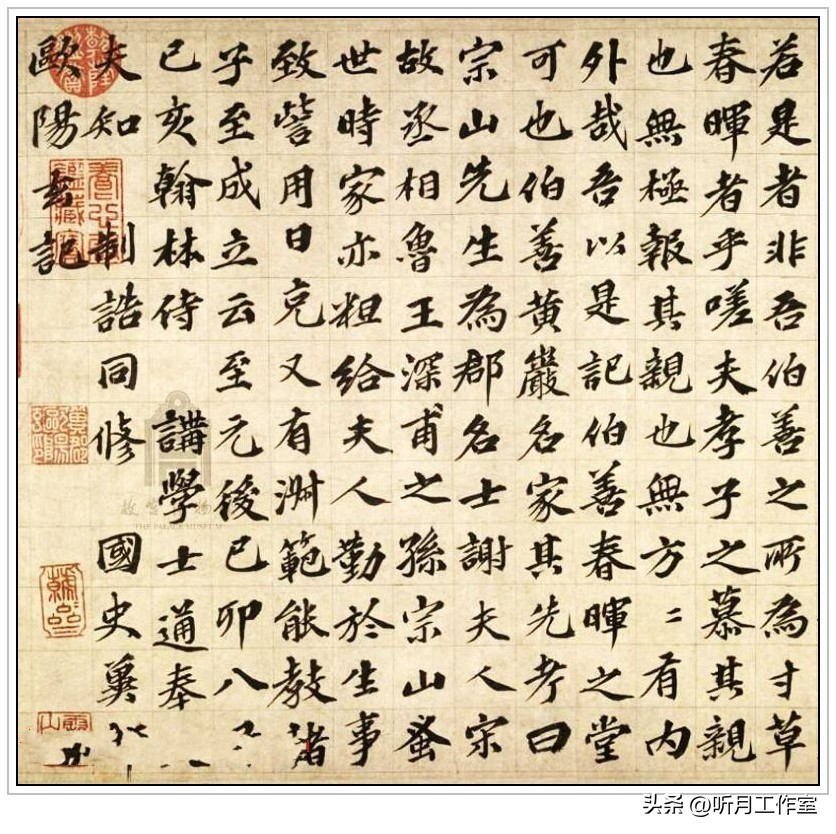 若是者非吾伯善之所為寸草
春暉者乎嗟夫孝子之慕其親
也無極報其親也無方〻有内
外哉吾以是記伯善春暉之堂
可也伯善黄巖名家其先考曰
宗山先生為郡名士謝夫人宗
故丞相魯王深甫之孫宗山蚤
世時家亦粗給夫人勤於生事
致訾用日克又有淵範能教諸
子至成立云至元後己卯八
己亥翰林侍講學士通奉
夫知制誥同修國史冀
歐陽玄記
THE PALACE MUSEUM
头条 @听月工作室